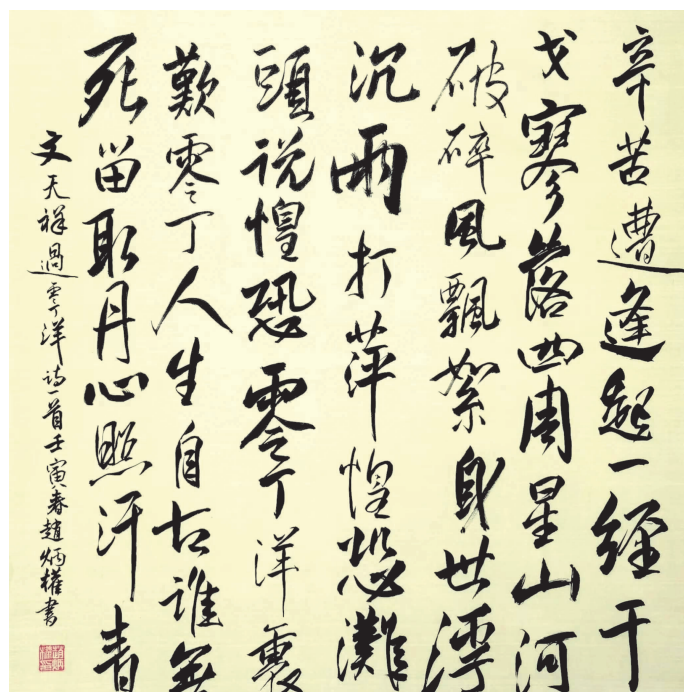 辛苦遭逢起一經干
戈寥落四周星山河
破碎風飄絮身世浮
沉雨打萍惶恐灘
頭说惶恐零丁洋裏
歎零丁人生自古誰無
死留取丹心照汗青
文天祥過零丁洋诗一首壬寅春趙炳權書